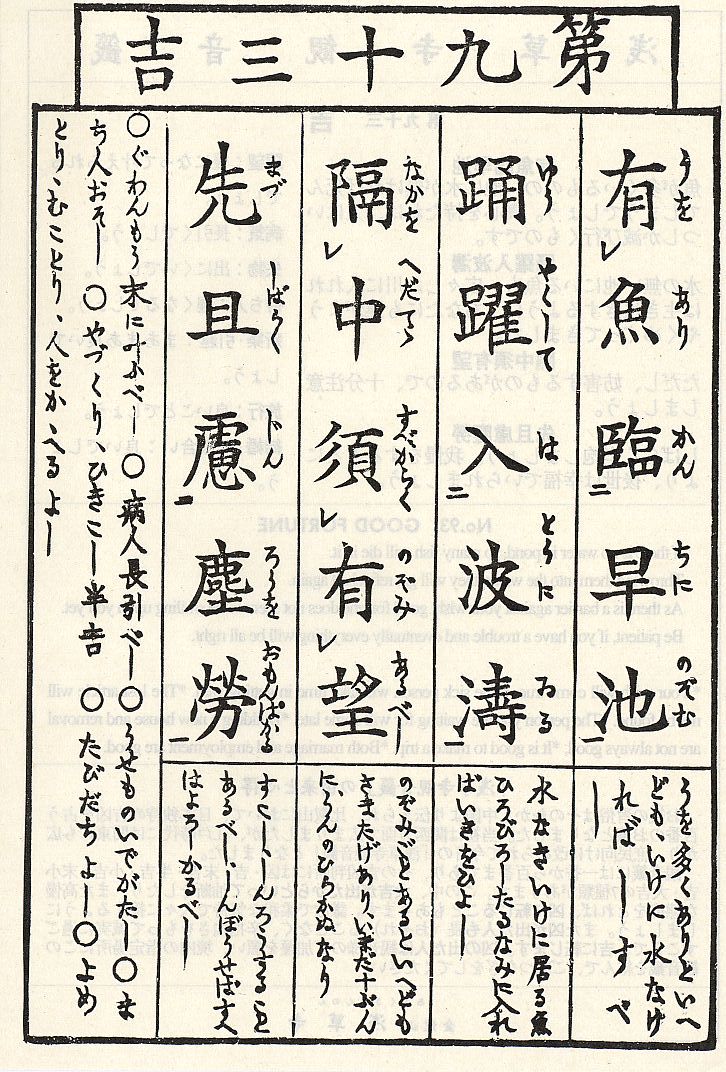 第九十三吉
有魚臨早池
うを あり かん ちに のぞむ
踊躍入波濤
ゆう やくして は とうに ゐる
隔中須有望
なかを へだてゝ すべからく のぞみ あるべし
先且慮塵勞
まづ しばらく じん ろうを おもんぱかる
うを多くありといへ
どもいけに水なけ
ればしすべし
水なきいけに居る魚
ひろびろたるなみに入れ
ばいきをひよし
のぞみごとあるといへども
さまたげあり、いまだ十ぶん
にうんのひらかぬなり
すこし、しんろうすること
あるべし、しんぼうせば末
はよろしかるべし
〇ぐわんもう末に叶ふべし〇病人長引べし〇うせものでがたし〇ま
ち人おそし〇やづくりひきこし半吉〇たびだちよし〇よめ
とり、むことり、人をかゝへるよし